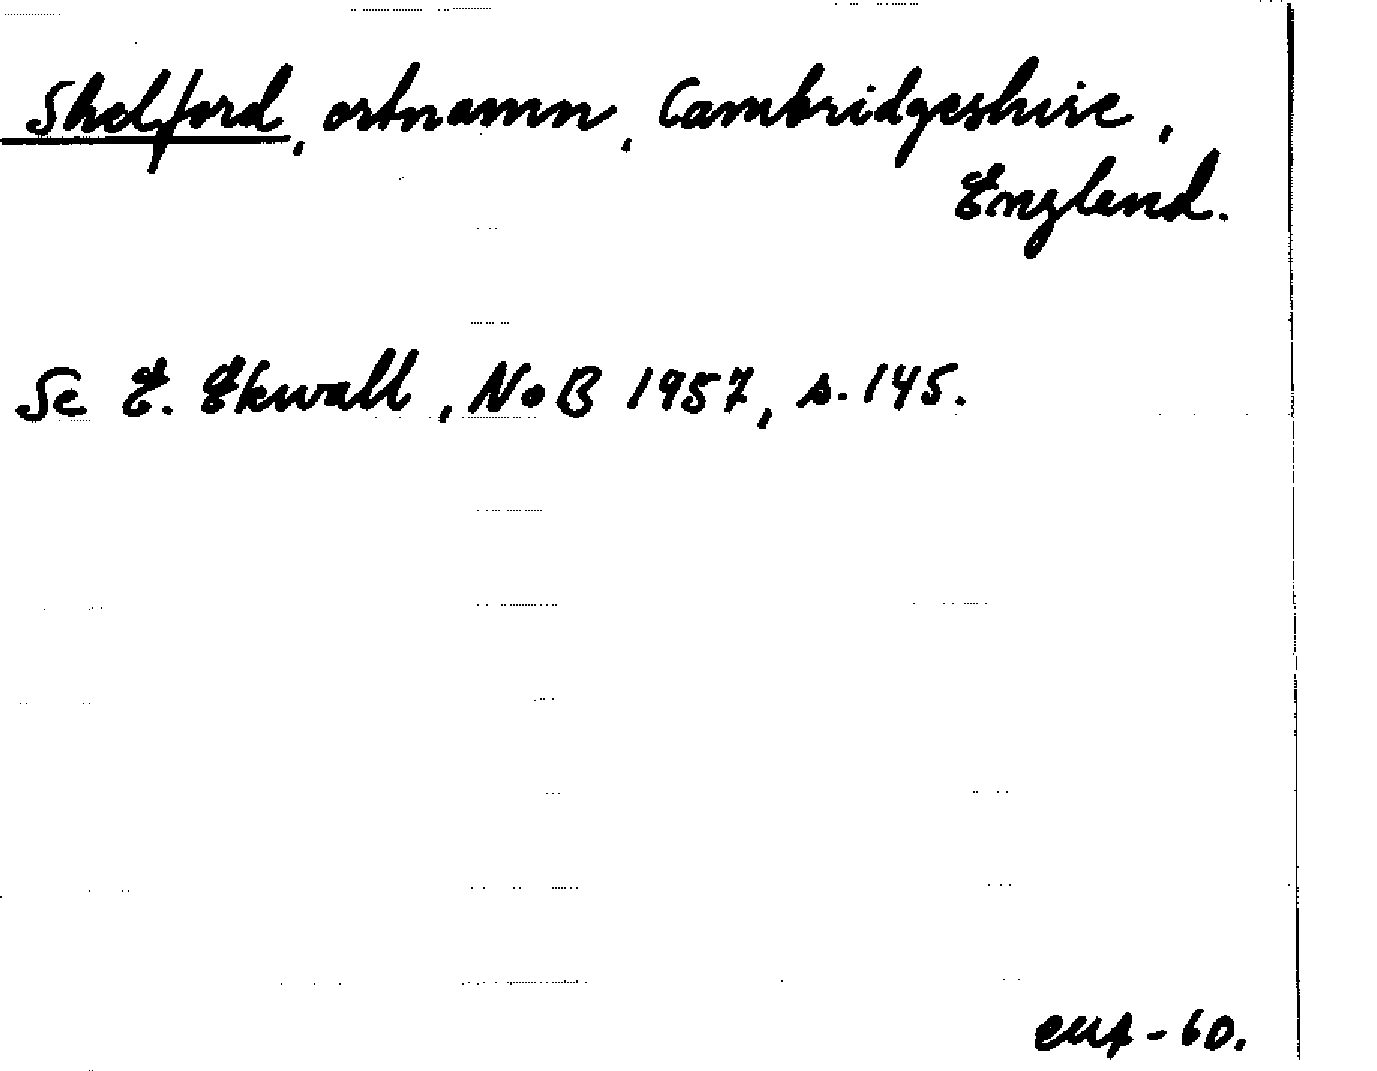 Shelford, ortnamn, Cambridgeshire,
England.
Se E. Ekwall, NoB 1957, s. 145.
-60.